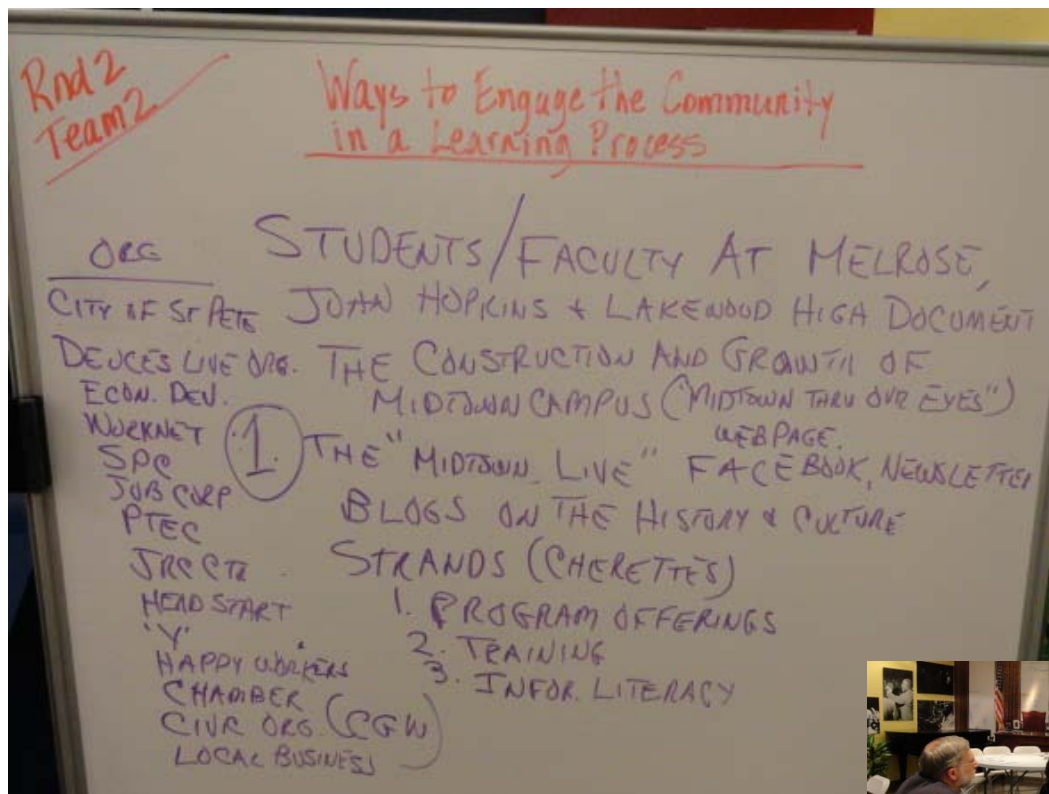 Rnd 2
Team 2
Ways to Engage the Community
in a Learning Process
ORG
CITY OF ST PETE
DEUCES LIVE ORG.
ECON. DEV.
WORKNET
SPC
JOB CORP
PTEC
HEAD START
"Y"
HAPPY WORKERS
CHAMBER
CIVIC ORG. (CGW)
LOCAL BUSINESS
STUDENTS/FACULTY AT MELROSE,
JOHN HOPKINS & LAKEWOOD HIGH DOCUMENT
THE CONSTRUCTION AND GROWTH OF
MIDTOWN CAMPUS ("MIDTOWN THRU OUR EYES")
WEBPAGE.
1. THE "MIDTOWN LIVE" FACEBOOK, NEWSLETTER
BLOGS ON THE HISTORY & CULTURE
STRANDS (CHERETTES)
1. PROGRAM OFFERINGS
2. TRAINING
3. INFOR. LITERACY